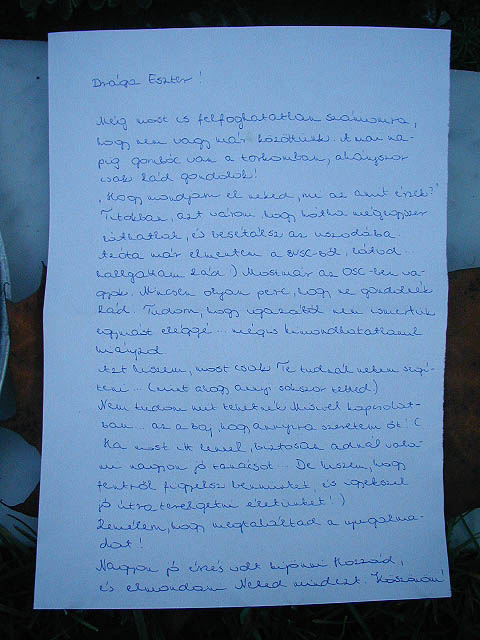 Drága Eszter!
Még most is felfoghatatlan számomra,
hogy nem vagy már közöttünk. A mai na-
pig gombóc van a torkomban, ahányszor
csak Rád gondolok!
"Hogy mondjam el neked, mi az amit érzek?"
Titokban, azt várom, hogy hátha mégegyszer
láthatlak, és besétálsz az uszodába.
Azóta már elmentem a BVSC-ből, látod
hallgattam Rád :) Mostmár az OSC-ben va-
gyok. Nincsen olyan perc, hogy ne gondolnék
Rád. Tudom, hogy igazából nem ismertük
egymást eléggé... mégis kimondhatatlanul
hiányzol.
Azt hiszem, most csak Te tudnál nekem segí-
teni... (mint ahogy annyi sokszor tetted.)
Nem tudom mit tehetnék kapcsolat-
ban... az a baj, hogy annyira szeretem őt! :(
Ha most itt lennél, biztosan adnál vala-
mi nagyon jó tanácsot... De hiszem, hogy
fentről figyelsz bennünket, és igyekszel
jó útra terelgetni életünket! :)
Remélem, hogy megtaláltad a nyugalma-
dat!
Nagyon jó érzés volt kijönni Hozzád,
és elmondani Neked mindezt. Köszönöm!